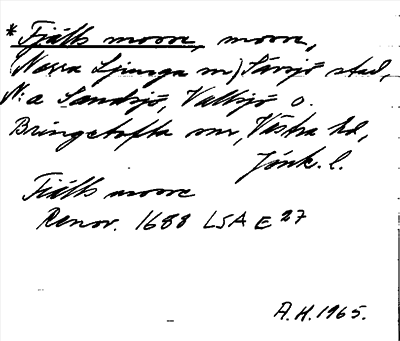 * Fjälls mosse, mosse,
(Norra Ljunga sn) Sävsjö stad,
N:a Sandsjö, Vallsjö o.
Bringetofta snr, Västra hd,
Jönk. l.
Fiälls mosse
Renov. 1688 LSA E 27
A.H. 1965.